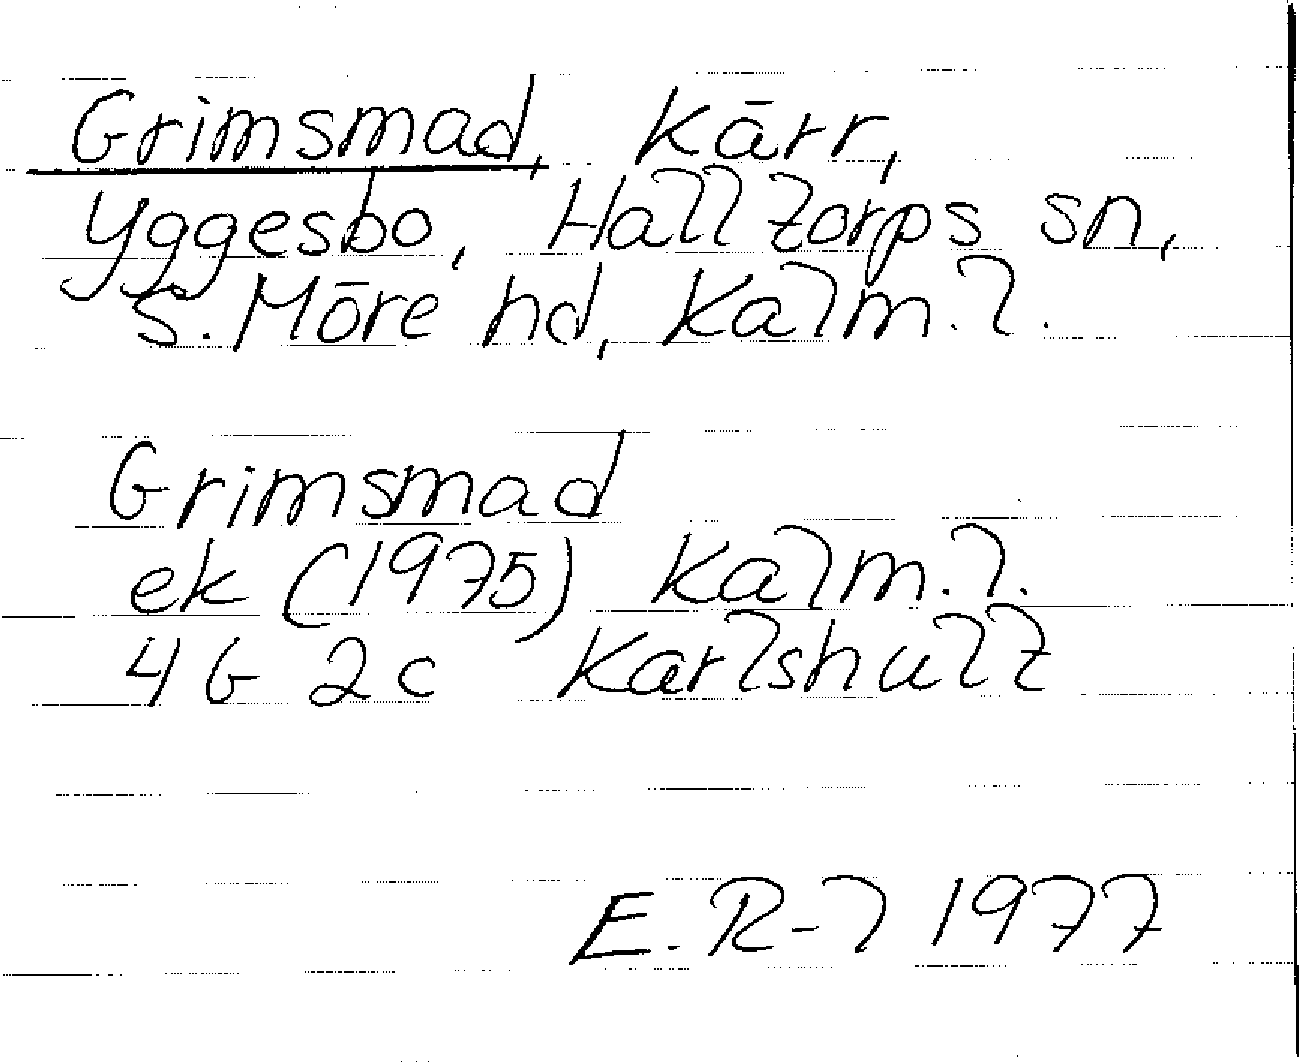 Grimsmad, Kärr,
Yggesbo, Halltorps sn,
S. Möre hd, Kalm. l.
Grimsmad
ek (1975) Kalm. l.
4G 2c Karlshult
E. R-l 1977